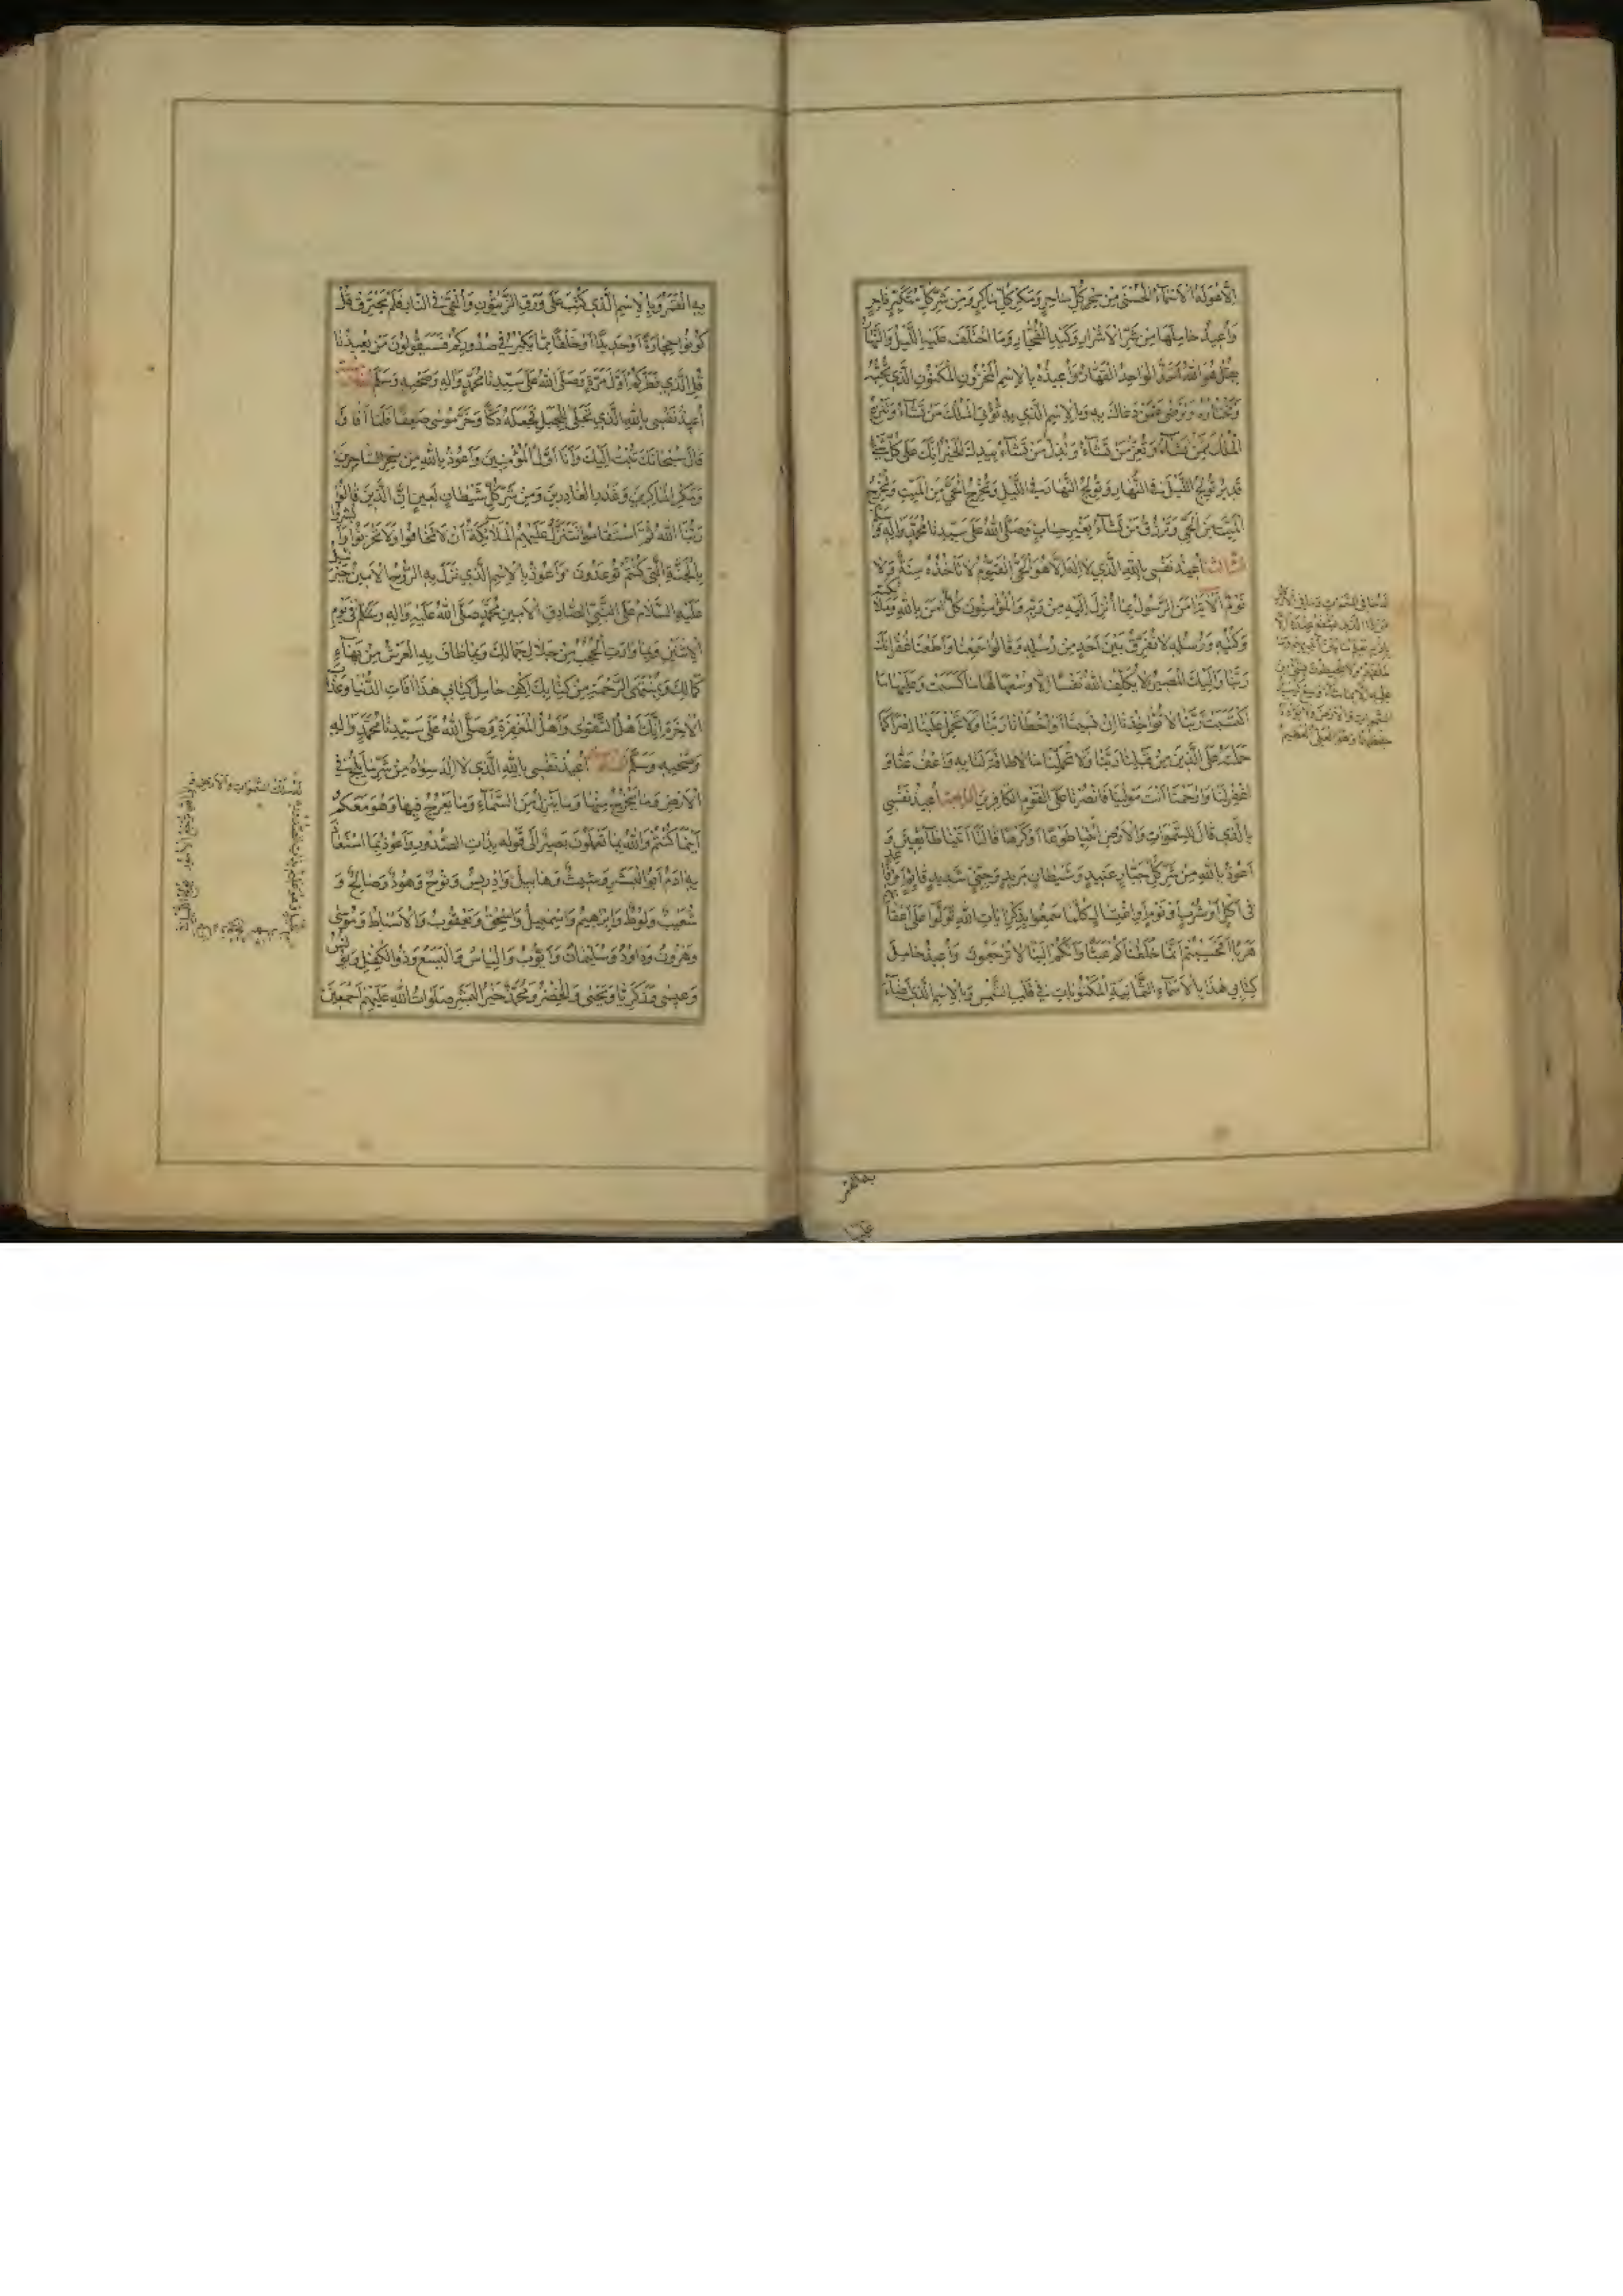 اِلّاٰ هُوَ لَهُ الْاَسْمٰاءُ الْحُسْنىٰ مِنْ سِحْرِ كُلِّ سٰاحِرٍ وَمَكْرِ كُلِّ مٰاكِرٍ وَمِنْ شَرِّ كُلِّ مُتَكَبِّرٍ فٰاجِرٍ
وَاُعيذُ حٰامِلَهٰا مِنْ شَرِّ الْاَشْرٰارِ وَكَيْدِ الْفُجّٰارِ وَمَا اخْتَلَفَ عَلَيْهِ اللَّيْلُ وَالنَّهٰارُ
هُوَ اللهُ الْوٰاحِدُ الْقَهّٰارُ وَاُعيذُهُ بِالْاِسْمِ الْمَخْزُونِ الْمَكْنُونِ الَّذي تُحِبُّهُ
وَتَخْتٰارُهُ وَتَرْضىٰ عَمَّنْ دَعٰاكَ بِهِ وَبِالْاِسْمِ الَّذي بِهِ تُؤْتِي الْمُلْكَ مَنْ تَشٰاءُ وَتَنْزِعُ
الْمُلْكَ مِمَّنْ تَشٰاءُ وَتُعِزُّ مَنْ تَشٰاءُ وَتُذِلُّ مَنْ تَشٰاءُ بِيَدِكَ الْخَيْرُ اِنَّكَ عَلىٰ كُلِّ شَيْءٍ
قَديرٌ تُولِجُ اللَّيْلَ فِي النَّهٰارِ وَتُولِجُ النَّهٰارَ فِي اللَّيْلِ وَتُخْرِجُ الْحَيَّ مِنَ الْمَيِّتِ وَتُخْرِجُ
الْمَيِّتَ مِنَ الْحَيِّ وَتَرْزُقُ مَنْ تَشٰاءُ بِغَيْرِ حِسٰابٍ وَصَلَّى اللهُ عَلىٰ سَيِّدِنٰا مُحَمَّدٍ وَاٰلِهِ وَسَلَّمَ
الثالث اُعيذُ نَفْسي بِاللهِ الَّذي لٰا اِلٰهَ اِلّاٰ هُوَ الْحَيُّ الْقَيُّومُ لٰا تَأْخُذُهُ سِنَةٌ وَلٰا
نَوْمٌ اٰمَنَ الرَّسُولُ بِمٰا اُنْزِلَ اِلَيْهِ مِنْ رَبِّهِ وَالْمُؤْمِنُونَ كُلٌّ اٰمَنَ بِاللهِ وَمَلٰائِكَتِهِ
وَكُتُبِهِ وَرُسُلِهِ لٰا نُفَرِّقُ بَيْنَ اَحَدٍ مِنْ رُسُلِهِ وَقٰالُوا سَمِعْنٰا وَاَطَعْنٰا غُفْرٰانَكَ
رَبَّنٰا وَاِلَيْكَ الْمَصيرُ لٰا يُكَلِّفُ اللهُ نَفْسًا اِلّاٰ وُسْعَهٰا لَهٰا مٰا كَسَبَتْ وَعَلَيْهٰا مَا
اكْتَسَبَتْ رَبَّنٰا لٰا تُؤٰاخِذْنٰا اِنْ نَسينٰا اَوْ اَخْطَأْنٰا رَبَّنٰا وَلٰا تَحْمِلْ عَلَيْنٰا اِصْرًا كَمٰا
حَمَلْتَهُ عَلَى الَّذينَ مِنْ قَبْلِنٰا رَبَّنٰا وَلٰا تُحَمِّلْنٰا مٰا لٰا طٰاقَةَ لَنٰا بِهِ وَاعْفُ عَنّٰا وَ
اغْفِرْ لَنٰا وَارْحَمْنٰا اَنْتَ مَوْلٰينٰا فَانْصُرْنٰا عَلَى الْقَوْمِ الْكٰافِرينَ الرابعة اُعيذُ نَفْسي
بِالَّذي قٰالَ لِلسَّمٰوٰاتِ وَالْاَرْضِ ائْتِيٰا طَوْعًا اَوْ كَرْهًا قٰالَتٰا اَتَيْنٰا طٰائِعينَ وَ
اَعُوذُ بِاللهِ مِنْ شَرِّ كُلِّ جَبّٰارٍ عَنيدٍ وَشَيْطٰانٍ مَريدٍ وَجِنِّيٍّ شَديدٍ قٰائِمٍ اَوْ قٰاعِدٍ
في اَكْلٍ اَوْ شُرْبٍ اَوْ نَوْمٍ اَوِ اغْتِسٰالٍ كُلَّمٰا سَمِعُوا بِذِكْرِ اٰيٰاتِ اللهِ تَوَلَّوْا عَلىٰ اَعْقٰابِهِمْ
هَرَبًا اَفَحَسِبْتُمْ اَنَّمٰا خَلَقْنٰاكُمْ عَبَثًا وَاَنَّكُمْ اِلَيْنٰا لٰا تُرْجَعُونَ وَاُعيذُ حٰامِلَ
كِتٰابي هٰذٰا بِالْاَسْمٰاءِ الثَّمٰانِيَةِ الْمَكْتُوبٰاتِ في قَلْبِ الشَّمْسِ وَبِالْاِسْمِ الَّذي اَضٰاءَ
لَهُ مٰا فِي السَّمٰوٰاتِ وَمٰا فِي الْاَرْضِ
مَنْ ذَا الَّذي يَشْفَعُ عِنْدَهُ اِلّاٰ
بِاِذْنِهِ يَعْلَمُ مٰا بَيْنَ اَيْديهِمْ وَمٰا
خَلْفَهُمْ وَلٰا يُحيطُونَ بِشَيْءٍ مِنْ
عِلْمِهِ اِلّاٰ بِمٰا شٰاءَ وَسِعَ كُرْسِيُّهُ
السَّمٰوٰاتِ وَالْاَرْضَ وَلٰا يَؤُدُهُ
حِفْظُهُمٰا وَهُوَ الْعَلِيُّ الْعَظيمُ
بِهِ الْقَمَرُ وَبِالْاِسْمِ الَّذي كُتِبَ عَلىٰ وَرَقِ الزَّيْتُونِ وَاُلْقِيَ فِي النّٰارِ فَلَمْ يَحْتَرِقْ قُلْ
كُونُوا حِجٰارَةً اَوْ حَديدًا اَوْ خَلْقًا مِمّٰا يَكْبُرُ في صُدُورِكُمْ فَسَيَقُولُونَ مَنْ يُعيدُنٰا
قُلِ الَّذي فَطَرَكُمْ اَوَّلَ مَرَّةٍ وَصَلَّى اللهُ عَلىٰ سَيِّدِنٰا مُحَمَّدٍ وَاٰلِهِ وَصَحْبِهِ وَسَلَّمَ
اُعيذُ نَفْسي بِاللهِ الَّذي تَجَلّىٰ لِلْجَبَلِ فَجَعَلَهُ دَكًّا وَخَرَّ مُوسىٰ صَعِقًا فَلَمّٰا اَفٰاقَ
قٰالَ سُبْحٰانَكَ تُبْتُ اِلَيْكَ وَاَنَا اَوَّلُ الْمُؤْمِنينَ وَاَعُوذُ بِاللهِ مِنْ سِحْرِ السّٰاحِرينَ
وَمَكْرِ الْمٰاكِرينَ وَغَدْرِ الْغٰادِرينَ وَمِنْ شَرِّ كُلِّ شَيْطٰانٍ لَعينٍ اِنَّ الَّذينَ قٰالُوا
رَبُّنَا اللهُ ثُمَّ اسْتَقٰامُوا تَتَنَزَّلُ عَلَيْهِمُ الْمَلٰائِكَةُ اَنْ لٰا تَخٰافُوا وَلٰا تَحْزَنُوا وَاَبْشِرُوا
بِالْجَنَّةِ الَّتي كُنْتُمْ تُوعَدُونَ وَاَعُوذُ بِالْاِسْمِ الَّذي نَزَلَ بِهِ الرُّوحُ الْاَمينُ جَبْرَئيلُ
عَلَيْهِ السَّلٰامُ عَلَى النَّبِيِّ الصّٰادِقِ الْاَمينِ مُحَمَّدٍ صَلَّى اللهُ عَلَيْهِ وَاٰلِهِ وَسَلَّمَ في يَوْمِ
الْاِثْنَيْنِ وَبِمٰا وٰارَتِ الْحُجُبُ مِنْ جَلٰالِ جَمٰالِكَ وَبِمٰا طٰافَ بِهِ الْعَرْشُ مِنْ بَهٰاءِ
كَمٰالِكَ وَبِمُنْتَهَى الرَّحْمَةِ مِنْ كِتٰابِكَ اِكْفِ حٰامِلَ كِتٰابي هٰذٰا اٰفٰاتِ الدُّنْيٰا وَعَذٰابَ
الْاٰخِرَةِ اِنَّكَ اَهْلُ التَّقْوىٰ وَاَهْلُ الْمَغْفِرَةِ وَصَلَّى اللهُ عَلىٰ سَيِّدِنٰا مُحَمَّدٍ وَاٰلِهِ
وَصَحْبِهِ وَسَلَّمَ اُعيذُ نَفْسي بِاللهِ الَّذي لٰا اِلٰهَ سِوٰاهُ مِنْ شَرِّ مٰا يَلِجُ فِي
الْاَرْضِ وَمٰا يَخْرُجُ مِنْهٰا وَمٰا يَنْزِلُ مِنَ السَّمٰاءِ وَمٰا يَعْرُجُ فيهٰا وَهُوَ مَعَكُمْ
اَيْنَمٰا كُنْتُمْ وَاللهُ بِمٰا تَعْمَلُونَ بَصيرٌ اِلىٰ قَوْلِهِ بِذٰاتِ الصُّدُورِ وَاَعُوذُ بِمَا اسْتَغٰاثَ
بِهِ اٰدَمُ اَبُو الْبَشَرِ وَشيثُ وَهٰابيلُ وَاِدْريسُ وَنُوحٌ وَهُودٌ وَصٰالِحٌ وَ
شُعَيْبٌ وَلُوطٌ وَاِبْرٰهيمُ وَاِسْمٰعيلُ وَاِسْحٰقُ وَيَعْقُوبُ وَالْاَسْبٰاطُ وَمُوسىٰ
وَهٰرُونُ وَدٰاوُدُ وَسُلَيْمٰانُ وَاَيُّوبُ وَاِلْيٰاسُ وَالْيَسَعُ وَذُو الْكِفْلِ وَيُونُسُ
وَعيسىٰ وَزَكَرِيّٰا وَيَحْيىٰ وَالْخِضْرُ وَمُحَمَّدٌ خَيْرُ الْبَشَرِ صَلَوٰاتُ اللهِ عَلَيْهِمْ اَجْمَعينَ
لَهُ مُلْكُ السَّمٰوٰاتِ وَالْاَرْضِ